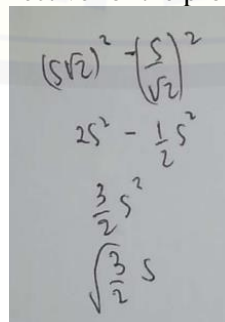 (s√2)² - (s/√2)²
2s² - 1/2 s²
3/2 s²
√(3/2) s